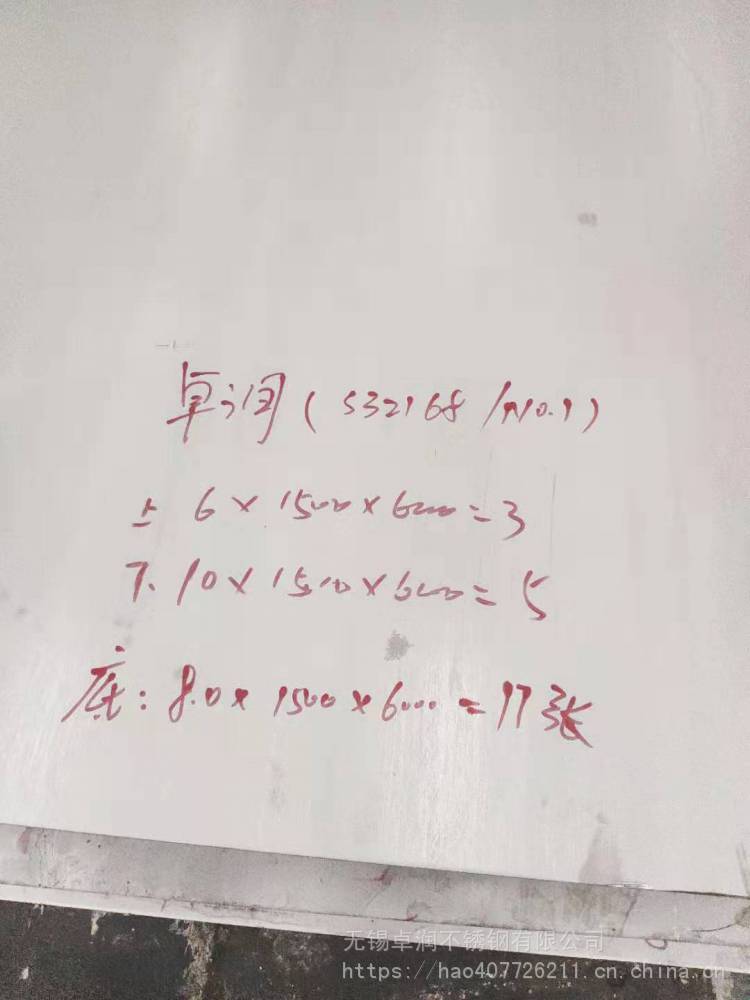 卓润(S32168/NO.1)
上 6×1500×6000=3
下.10×1510×6000=5
底:8.0×1500×6000=17张
无锡卓润不锈钢有限公司
https://hao407726211.cn.china.cn